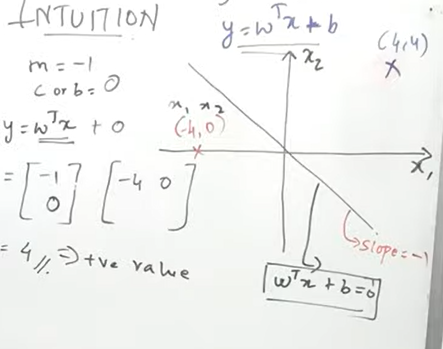 INTUITION
y = wᵀx + b
(4,4)
x
m = -1
c or b = 0
y = wᵀx + 0
= [-1 0] [-4 0]
= 4 ⇒ +ve value
x₂
x₁ x₂
(-4,0)
x
x₁
slope = -1
wᵀx + b = 0